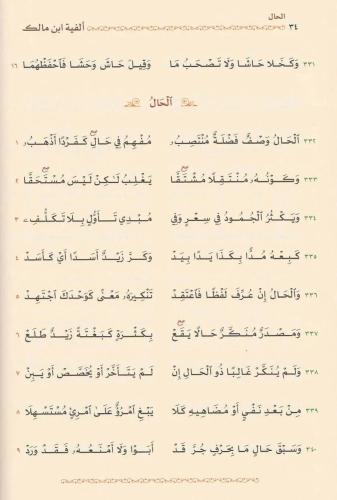 الحال
٣٤ ألفية ابن مالك
٣٣١ وَكَخَلَا حَاشَا وَلَا تَصْحَبُ مَا وَقِيلَ حَاشَ وَحَشَا فَاحْفَظْهُمَا ١٦
الْحَالُ
٣٣٢ الْحَالُ وَصْفٌ فَضْلَةٌ مُنْتَصِبُ مُفْهِمُ فِي حَالِ كَفَرْدًا أَذْهَبُ ١
٣٣٣ وَكَوْنُهُ مُنْتَقِلًا مُشْتَقَّا يَغْلِبُ لَٰكِنْ لَيْسَ مُسْتَحَقَّا ٢
٣٣٤ وَيَكْثُرُ الْجُمُودُ فِي سِعْرٍ وَفِي مُبْدِي تَأَوُّلٍ بِلَا تَكَلُّفِ ٣
٣٣٥ كَبِعْهُ مُدًّا بِكَذَا يَدًا بِيَدْ وَكَرَّ زَيْدٌ أَسَدًا أَيْ كَأَسَدْ ٤
٣٣٦ وَالْحَالُ إِنْ عُرِّفَ لَفْظًا فَاعْتَقِدْ تَنْكِيرَهُ مَعْنًى كَوَحْدَكَ اجْتَهِدْ ٥
٣٣٧ وَمَصْدَرٌ مُنَكَّرٌ حَالًا يَقَعْ بِكَثْرَةٍ كَبَغْتَةً زَيْدٌ طَلَعْ ٦
٣٣٨ وَلَمْ يُنَكَّرْ غَالِبًا ذُو الْحَالِ إِنْ لَمْ يَتَأَخَّرْ أَوْ يُخَصَّصْ أَوْ يَبِنْ ٧
٣٣٩ مِنْ بَعْدِ نَفْيٍ أَوْ مُضَاهِيهِ كَلَا يَبْغِ امْرُؤٌ عَلَى امْرِئٍ مُسْتَسْهِلَا ٨
٣٤٠ وَسَبْقَ حَالٍ مَا بِحَرْفٍ جُرَّ قَدْ أَبَوْا وَلَا أَمْنَعُهُ فَقَدْ وَرَدْ ٩